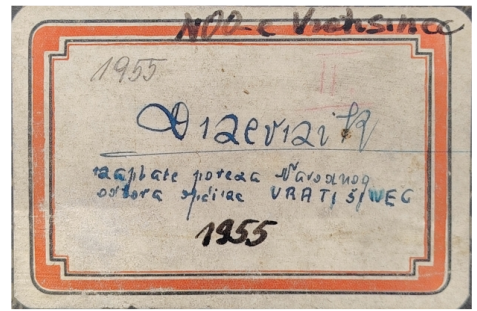 NOO-e Vrehsinec
1955
II
Dnevnik
naplate poreza Narodnog
odbora općine VRATIŠINEC
1955